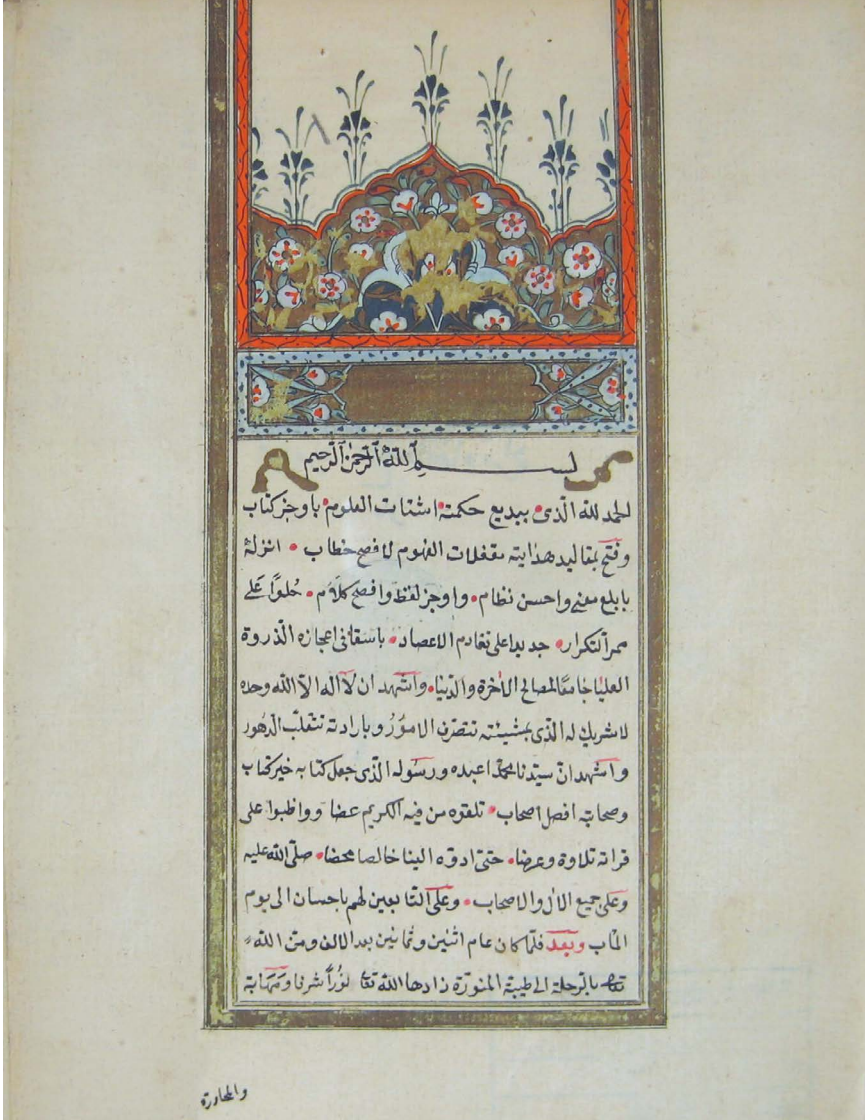 بسم الله الرحمن الرحيم
الحمد لله الذى ببديع حكمته اشتات العلوم باوجز كتاب
وفتح بمقاليد هدايته مقفلات الفهوم لافصح خطاب انزله
بابلغ معنى واحسن نظام واوجز لفظ وافصح كلام حلوًا على
ممر التكرار جديدا على تقادم الاعصار باسقا فى اعجازه الذروة
العليا جامعًا لمصالح الاخرة والدنيا واشهد ان لا اله الا الله وحده
لا شريك له الذى بمشيئته تتصرف الامور وبارادته تتقلب الدهور
واشهد ان سيدنا محمدا عبده ورسوله الذى جعل كتابه خير كتاب
وصحابته افضل اصحاب تلقوه من فيه الكريم غضا وواظبوا على
قراته تلاوة وعرضا حتى ادوه الينا خالصا محضا صلى الله عليه
وعلى جميع الال والاصحاب وعلى التابعين لهم باحسان الى يوم
الماب وبعد فلما كان عام اثنين وثمانين بعد الالف ومن الله
تعالى بالرحلة الى طيبة المنورة زادها الله تعالى نورًا شرفا ومهابة
والمجاورة